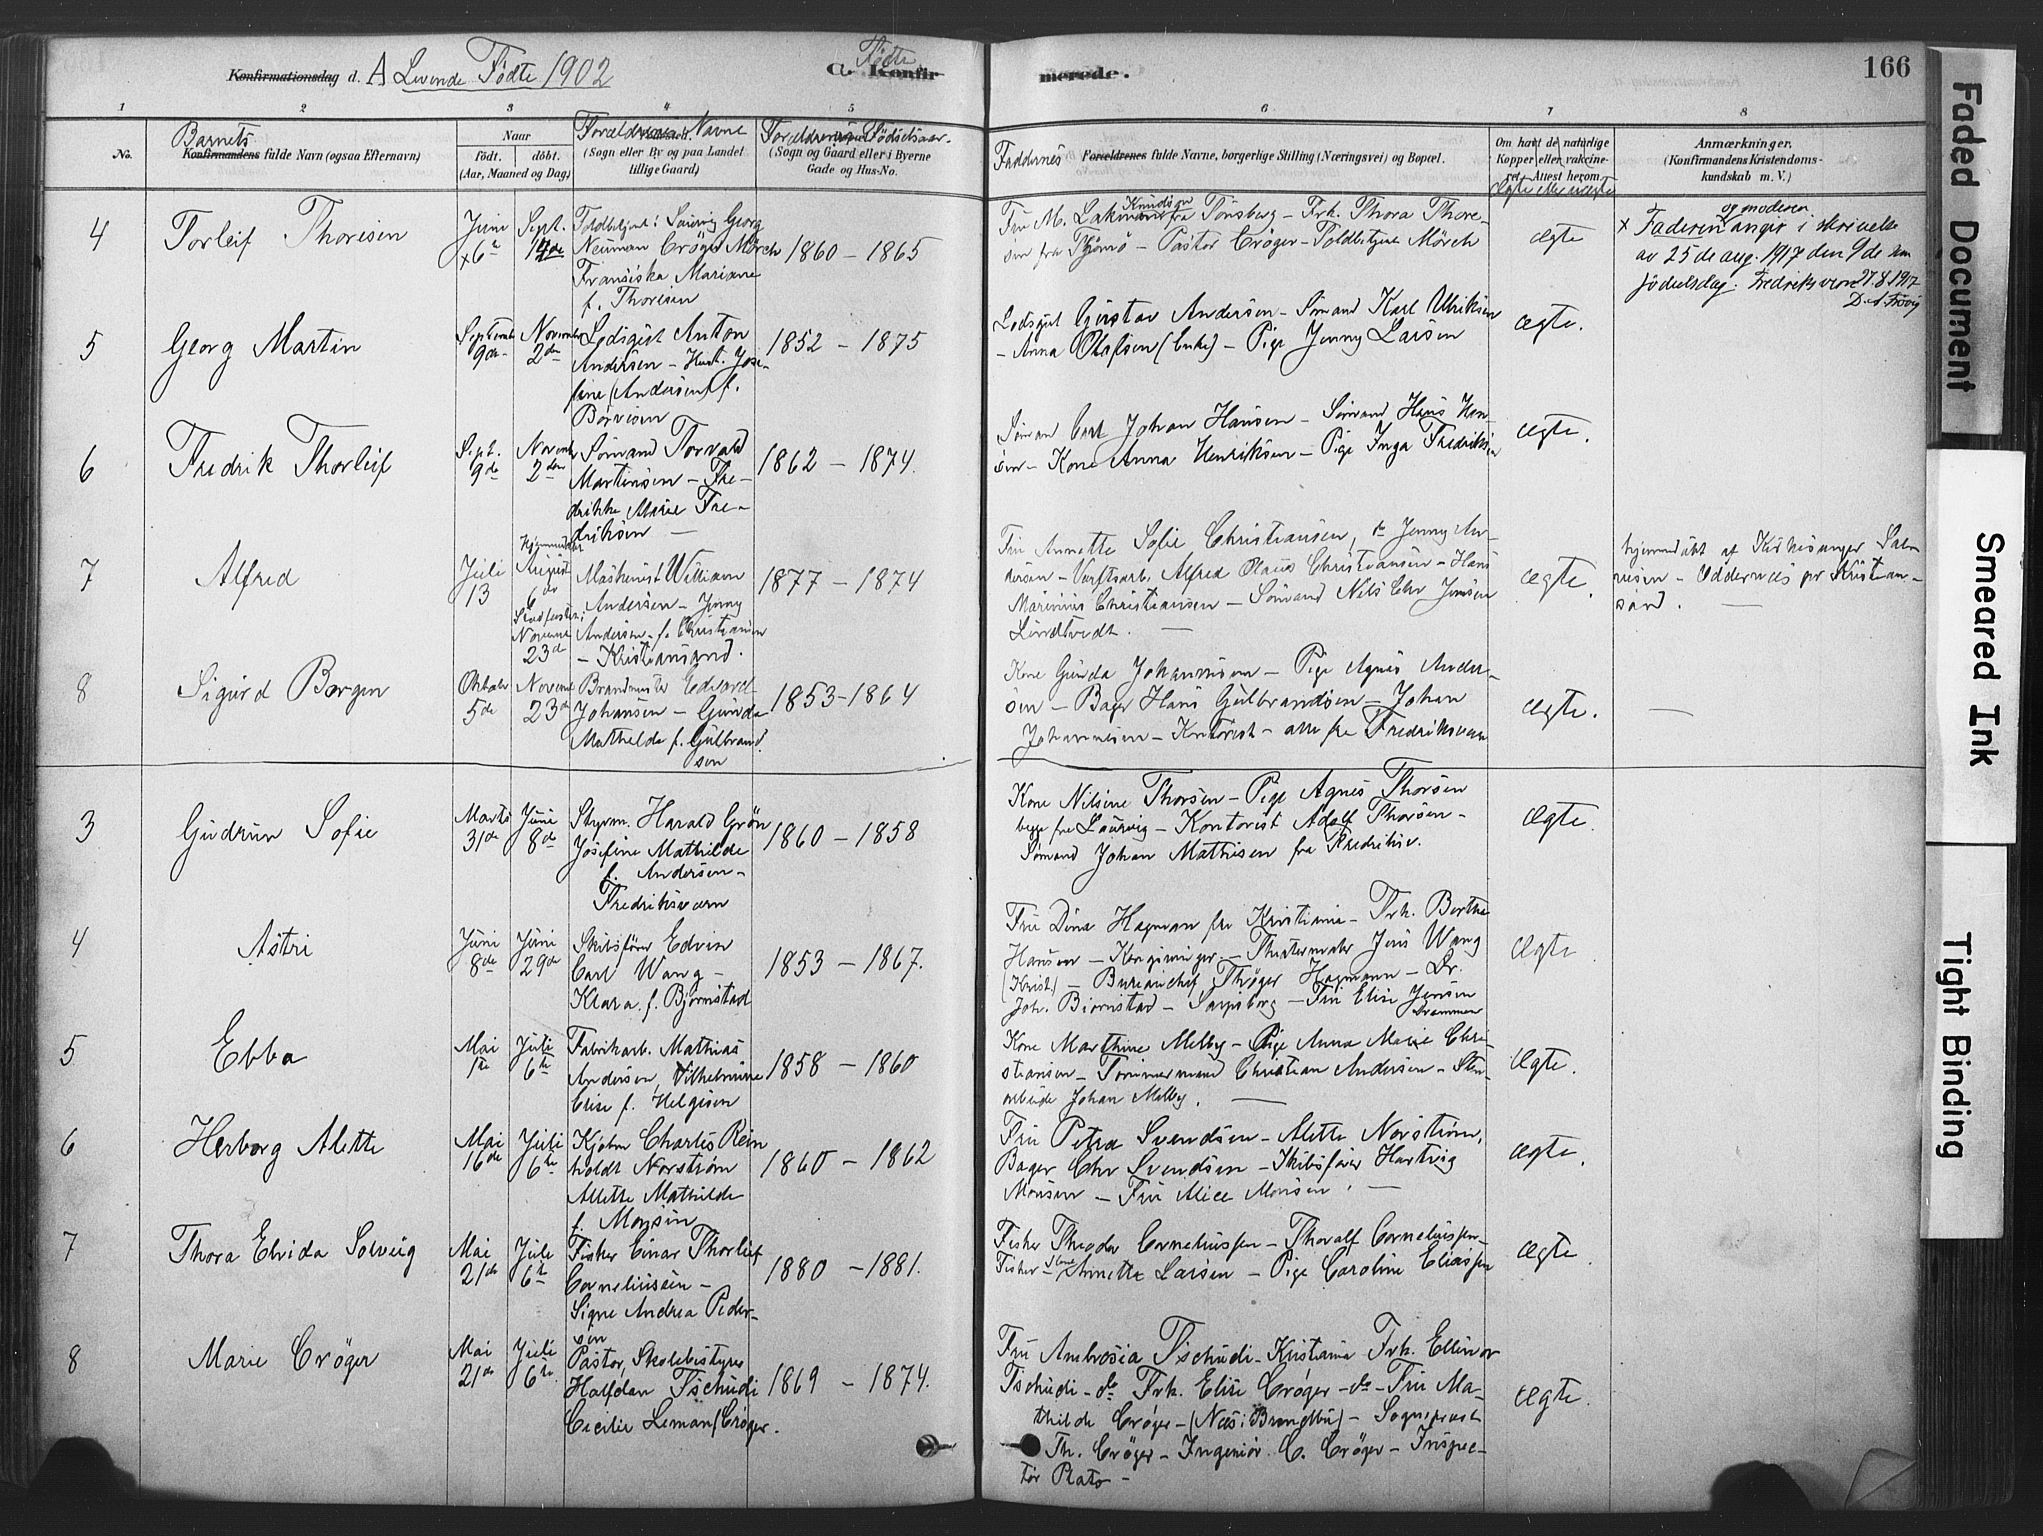 Konfirmationsdag d. A Levende Födte 1902
C. Konfir- Födte
merede.
166
1 2 3 4 5 6 7 8
No.
Barnets
Konfirmandens fulde Navn (ogsaa Efternavn)
Naar
födt. döbt.
(Aar, Maaned og Dag)
Forældrenes Navne
(Sogn eller By og paa Landet
tillige Gaard)
Forældrenes Födselsaar.
(Sogn og Gaard eller i Byerne
Gade og Hus-No.
Faddernes Forældrenes fulde Navne, borgerlige Stilling (Næringsvei) og Bopæl.
Om havt de naturlige
Kopper eller vaccine-
ret. Attest herom
Ægte eller uægte
Anmærkninger.
(Konfirmandens Kristendoms-
kundskab m. V.)
4
Torleif Thorisen
Juni
x 6te
Sept.
14de
Toldbetjent i Georg
Neuman Cröger Mörch
Fransiska Mariane
f. Thorisen
1860 – 1865
Fru M. Knudsen fra Tönsberg – Frk. Thora Thore-
sen fra Tjömö – Pastor Cröger – Toldbetjent Mörch
ægte
x Faderen og moderen angir i skrivelse
av 25de aug. 1917 den 9de som
födselsdag. Fredriksvern 27.8.1917
5
Georg Martin
September
9de
November
2den
Lodsgut Anton
Andersen – Hust. Jose-
fine (Andersen) f.
Börvisen
1852 – 1875
Lodsgut Gustav Andersen – Sömand Karl Ulriksen
– Anna Olafsen (Enke) – Pige Jenny Larsen
ægte.
6
Fredrik Thorleif
Sept.
9de
Novemb
2den
Sömand Torvald
Martinsen – Fre-
drikke Marie Fre-
driksen —
1862 – 1874.
Sömand Carl Johan Hansen – Sömand Hans Hen-
sen – Kone Anna Henriksen – Pige Inga Fredriksen
ægte.
7
Alfred
Juli
13
Hjemmedöbt
August
6te
Stadfestet i
Novemb
23de
Maskinist William
Andersen – Jenny
Andersen – f. Christiansen
– Kristiansand.
1877 – 1874
Fru Annette Sofie Christiansen, do Jenny An-
dersen – Verftsarb. Alfred Olaus Christiansen – Hans
Marinius Christiansen – Sömand Nils Chr Jensen
Lindtvedt. —
ægte.
hjemmedöbt af Kirkesanger Sal-
vesen – Oddernæs pr Kristian-
sand. —
8
Sigurd Borgen
Oktober
5de
Novemb
23de
Brandmester Edvard
Johansen – Gunda
Mathilde f. Gulbrand
sen
1853 – 1864
Kone Gunda Johannesen – Pige Agnes Ander-
sen – Bager Hans Gulbrandsen – Johan
Johannesen – Kontorist – alle fra Fredriksværn
ægte. —
3
Gudrun Sofie
Marts
31de
Juni
8de
Styrm. Harald Grön
Josefine Mathilde
f. Andersen –
Fredriksværn
1860 – 1858
Kone Nilsine Thorsen – Pige Agnes Thorsen
begge fra Laurvig – Kontorist Adolf Thorsen –
Sömand Johan Mathisen fra Fredriksv.
Ægte.
4
Astri
Juni
8de
Juni
29de
Skibsförer Edvin
Carl Wang –
Klara f. Bjørnstad
1853 – 1867.
Fru Dina Hagman fra Kristiania – Frk. Borthe
Hansen – Kongsvinger – Theatermaler Jens Wang
(Krist.) – Bureauchef Thröger Hagmann – Dr.
Joh. Biørnstad – Sarpsborg – Fru Elise Jensen
Drammen
Ægte.
5
Ebba
Mai
1ste
Juli
6te
Fabrikarb. Mathias
Andersen, Vilhelmine
Elise f. Helgisen
1858 – 1860
Kone Marthine Melby – Pige Anna Marie Chri-
stiansen – Tömmermand Christian Andersen – Sten-
arbeide Johan Melby. —
Ægte.
6
Herborg Alette
Mai
16de
Juli
6te
Kjöbm Charles Rein
holdt Norström
Alette Mathilde
f. Monsen
1860 – 1862
Fru Petra Svendsen – Alette Norström,
Bager Chr Svendsen – Skibsförer Hartvig
Monsen – Fru Alice Monsen. —
ægte.
7
Thora Elvida Solveig
Mai
21de
Juli
6te
Fisker Einar Thorleif
Corneliussen –
Signe Andrea Peder-
sen
1880 – 1881.
Fisker Theodor Corneliussen – Thoralf Corneliussen –
Fisker – Kone Annette Larsen – Pige Caroline Eliassen
ægte.
8
Marie Cröger
Mai
21de
Juli
6te
Pastor, Skolebestyrer
Halfdan Tschudi
Cecilie Leman (Cröger.
1869 – 1874.
Fru Ambrosia Tschudi – Kristiania Frk. Ellinor
Tschudi – do Frk. Elise Cröger – do – Fru Ma-
thilde Cröger – (Næs i Brunglbu) – Sogneprest
Th. Cröger – Ingeniör C. Cröger – Inspec-
tör Plato –
ægte.
Faded Document
Smeared Ink
Tight Binding